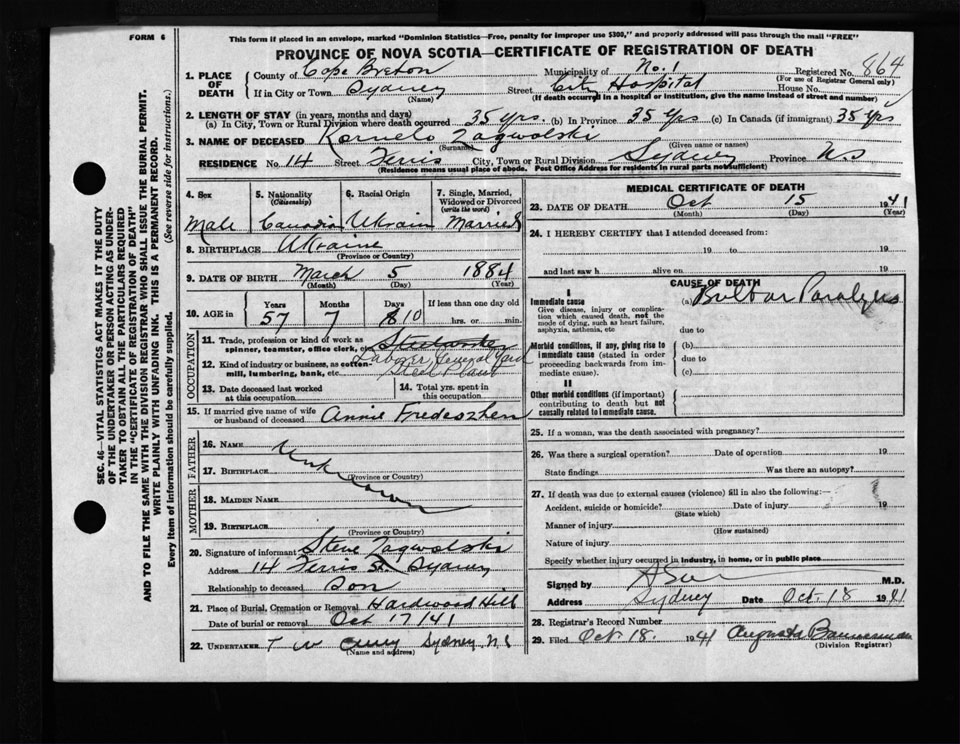 FORM 6
This form if placed in an envelope, marked "Dominion Statistics—Free, penalty for improper use $300," and properly addressed will pass through the mail "FREE"
PROVINCE OF NOVA SCOTIA—CERTIFICATE OF REGISTRATION OF DEATH
SEC. 46—VITAL STATISTICS ACT MAKES IT THE DUTY
OF THE UNDERTAKER OR PERSON ACTING AS UNDER-
TAKER TO OBTAIN ALL THE PARTICULARS REQUIRED
IN THE "CERTIFICATE OF REGISTRATION OF DEATH"
AND TO FILE THE SAME WITH THE DIVISION REGISTRAR WHO SHALL ISSUE THE BURIAL PERMIT.
WRITE PLAINLY WITH UNFADING INK. THIS IS A PERMANENT RECORD.
Every item of information should be carefully supplied. (See reverse side for instructions.)
1. PLACE OF DEATH County of Cape Breton Municipality of No. 1 Registered No. 864
(For use of Registrar General only)
If in City or Town Sydney Street City Hospital House No.
(Name) (If death occurred in a hospital or institution, give the name instead of street and number)
2. LENGTH OF STAY (in years, months and days)
(a) In City, Town or Rural Division where death occurred 35 yrs. (b) In Province 35 yrs (c) In Canada (if immigrant) 35 yrs
3. NAME OF DECEASED Kornelo Zagwolski
(Surname) (Given name or names)
RESIDENCE No. 14 Street Ferris City, Town or Rural Division Sydney Province N.S
(Residence means usual place of abode. Post Office Address for residents in rural parts not sufficient)
4. Sex 5. Nationality (Citizenship) 6. Racial Origin 7. Single, Married, Widowed or Divorced (write the word)
Male Canadian Ukrain Married
8. BIRTHPLACE Ukraine
(Province or Country)
9. DATE OF BIRTH March 5 1884
(Month) (Day) (Year)
10. AGE in Years Months Days If less than one day old
57 7 10 hrs. or min.
OCCUPATION
11. Trade, profession or kind of work as spinner, teamster, office clerk, etc. Steelworker
Laborer, General Yard
12. Kind of industry or business, as cotton-mill, lumbering, bank, etc. Steel Plant
13. Date deceased last worked at this occupation
14. Total yrs. spent in this occupation
15. If married give name of wife or husband of deceased Annie
FATHER
16. NAME
17. BIRTHPLACE
(Province or Country)
Unknown
MOTHER
18. MAIDEN NAME
19. BIRTHPLACE
(Province or Country)
20. Signature of informant Steve Zagwolski
Address 14 Ferris St. Sydney
Relationship to deceased Son
21. Place of Burial, Cremation or Removal Hardwood Hill
Date of burial or removal Oct 17/41
22. UNDERTAKER T W Curry Sydney N.S
(Name and address)
MEDICAL CERTIFICATE OF DEATH
23. DATE OF DEATH Oct 15 1941
(Month) (Day) (Year)
24. I HEREBY CERTIFY that I attended deceased from:
19 to 19
and last saw h alive on 19
CAUSE OF DEATH
I
Immediate cause (a) Bulbar Paralysis
Give disease, injury or complication which caused death, not the mode of dying, such as heart failure, asphyxia, asthenia, etc
due to
Morbid conditions, if any, giving rise to immediate cause (stated in order proceeding backwards from immediate cause).
(b)
due to
(c)
II
Other morbid conditions (if important) contributing to death but not causally related to immediate cause.
25. If a woman, was the death associated with pregnancy?
26. Was there a surgical operation? Date of operation 19
State findings Was there an autopsy?
27. If death was due to external causes (violence) fill in also the following:
Accident, suicide or homicide? Date of injury 19
(State which)
Manner of injury
(How sustained)
Nature of injury
Specify whether injury occurred in industry, in home, or in public place
Signed by M.D.
Address Sydney Date Oct. 18 1941
28. Registrar's Record Number
29. Filed Oct. 18. 1941 Augusta
(Division Registrar)